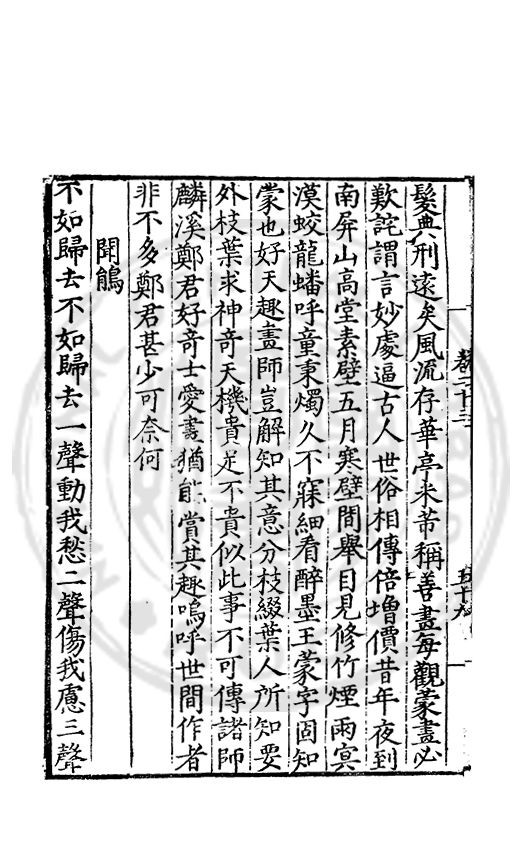 卷二十三
五十九
髮典刑遠矣風流存華亭朱芾稱善畫每觀蒙畫必
歎詫謂言妙處逼古人世俗相傳倍增價昔年夜到
南屏山高堂素壁五月寒壁間舉目見修竹煙雨冥
漠蛟龍蟠呼童秉燭久不寐細看醉墨王蒙字固知
蒙也好天趣畫師豈解知其意分枝綴葉人所知要
外枝葉求神竒天機貴足不貴似此事不可傳諸師
麟溪鄭君好竒士愛畫猶能賞其趣嗚呼世間作者
非不多鄭君甚少可奈何
聞鵑
不如歸去不如歸去一聲動我愁二聲傷我慮三聲